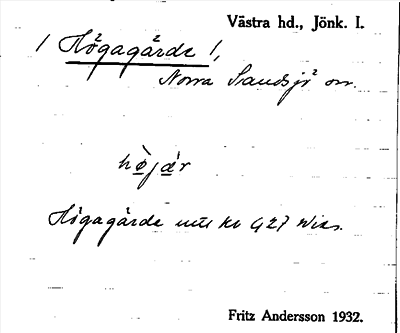 Västra hd., Jönk. l.
/ Högagärde /,
Norra Sandsjö sn.
højær
Högagärde utt kv G 27
Fritz Andersson 1932.